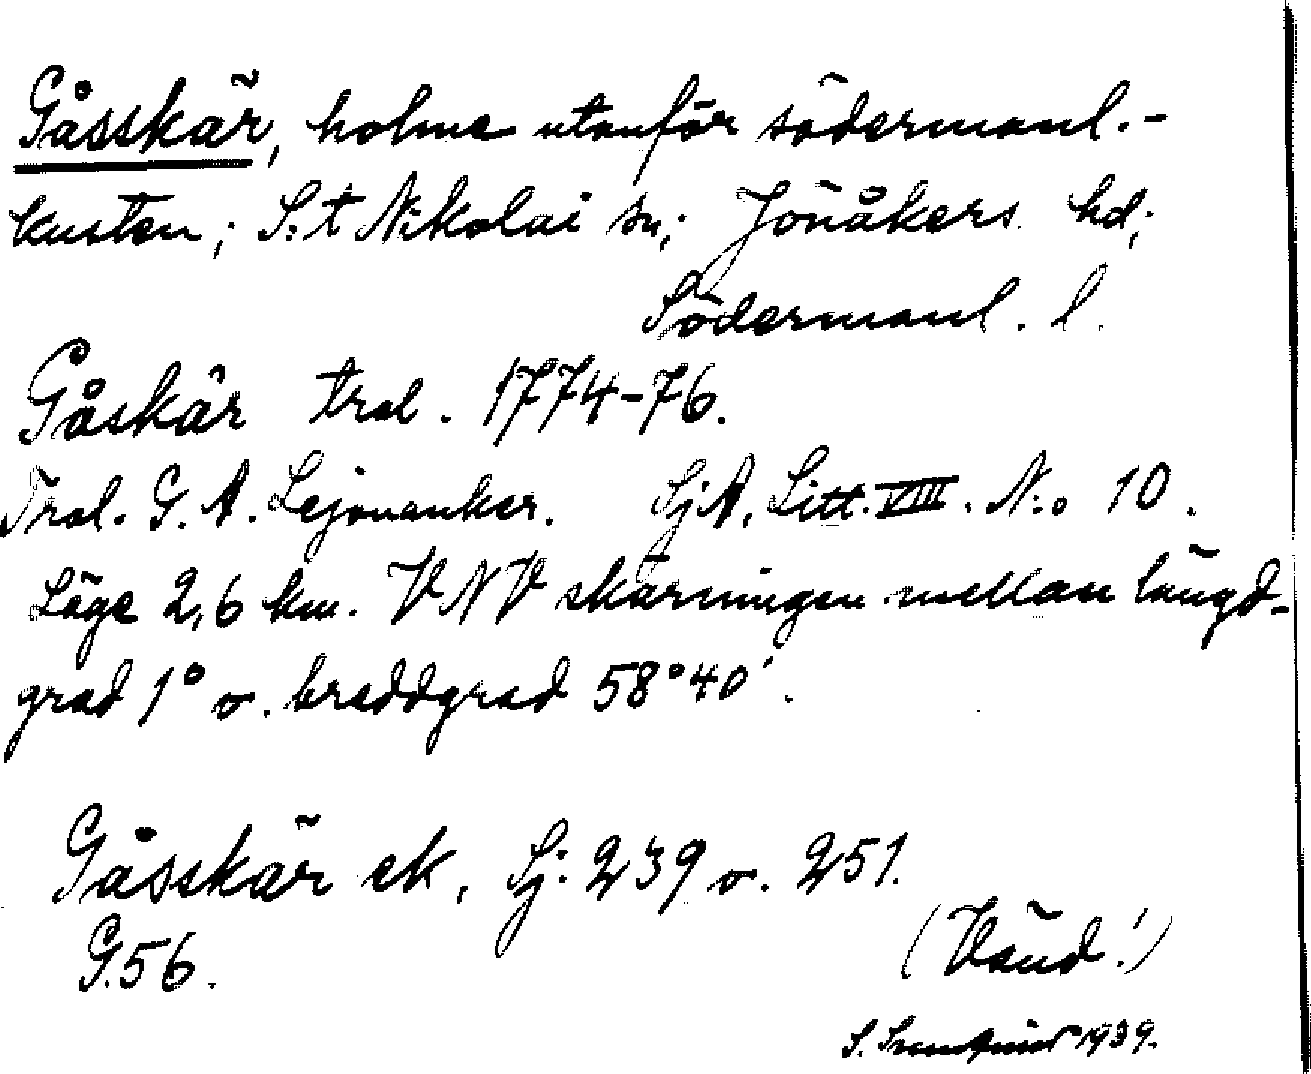 Gåsskär, holme utanför södermanl.-
kusten; S:t Nikolai sn; Jönåkers hd;
Södermanl. l.
Gåskär trol. 1774-76.
Trol. G. A. Lejonanker. SjA. Litt. VIII. N:o 10.
Läge 2,6 km. VNV skärningen mellan längd-
grad 1° o. breddgrad 58°40'.
Gåsskär ek. Sj: 239 o. 251.
G.56.
(Vänd!)
S. 1939.